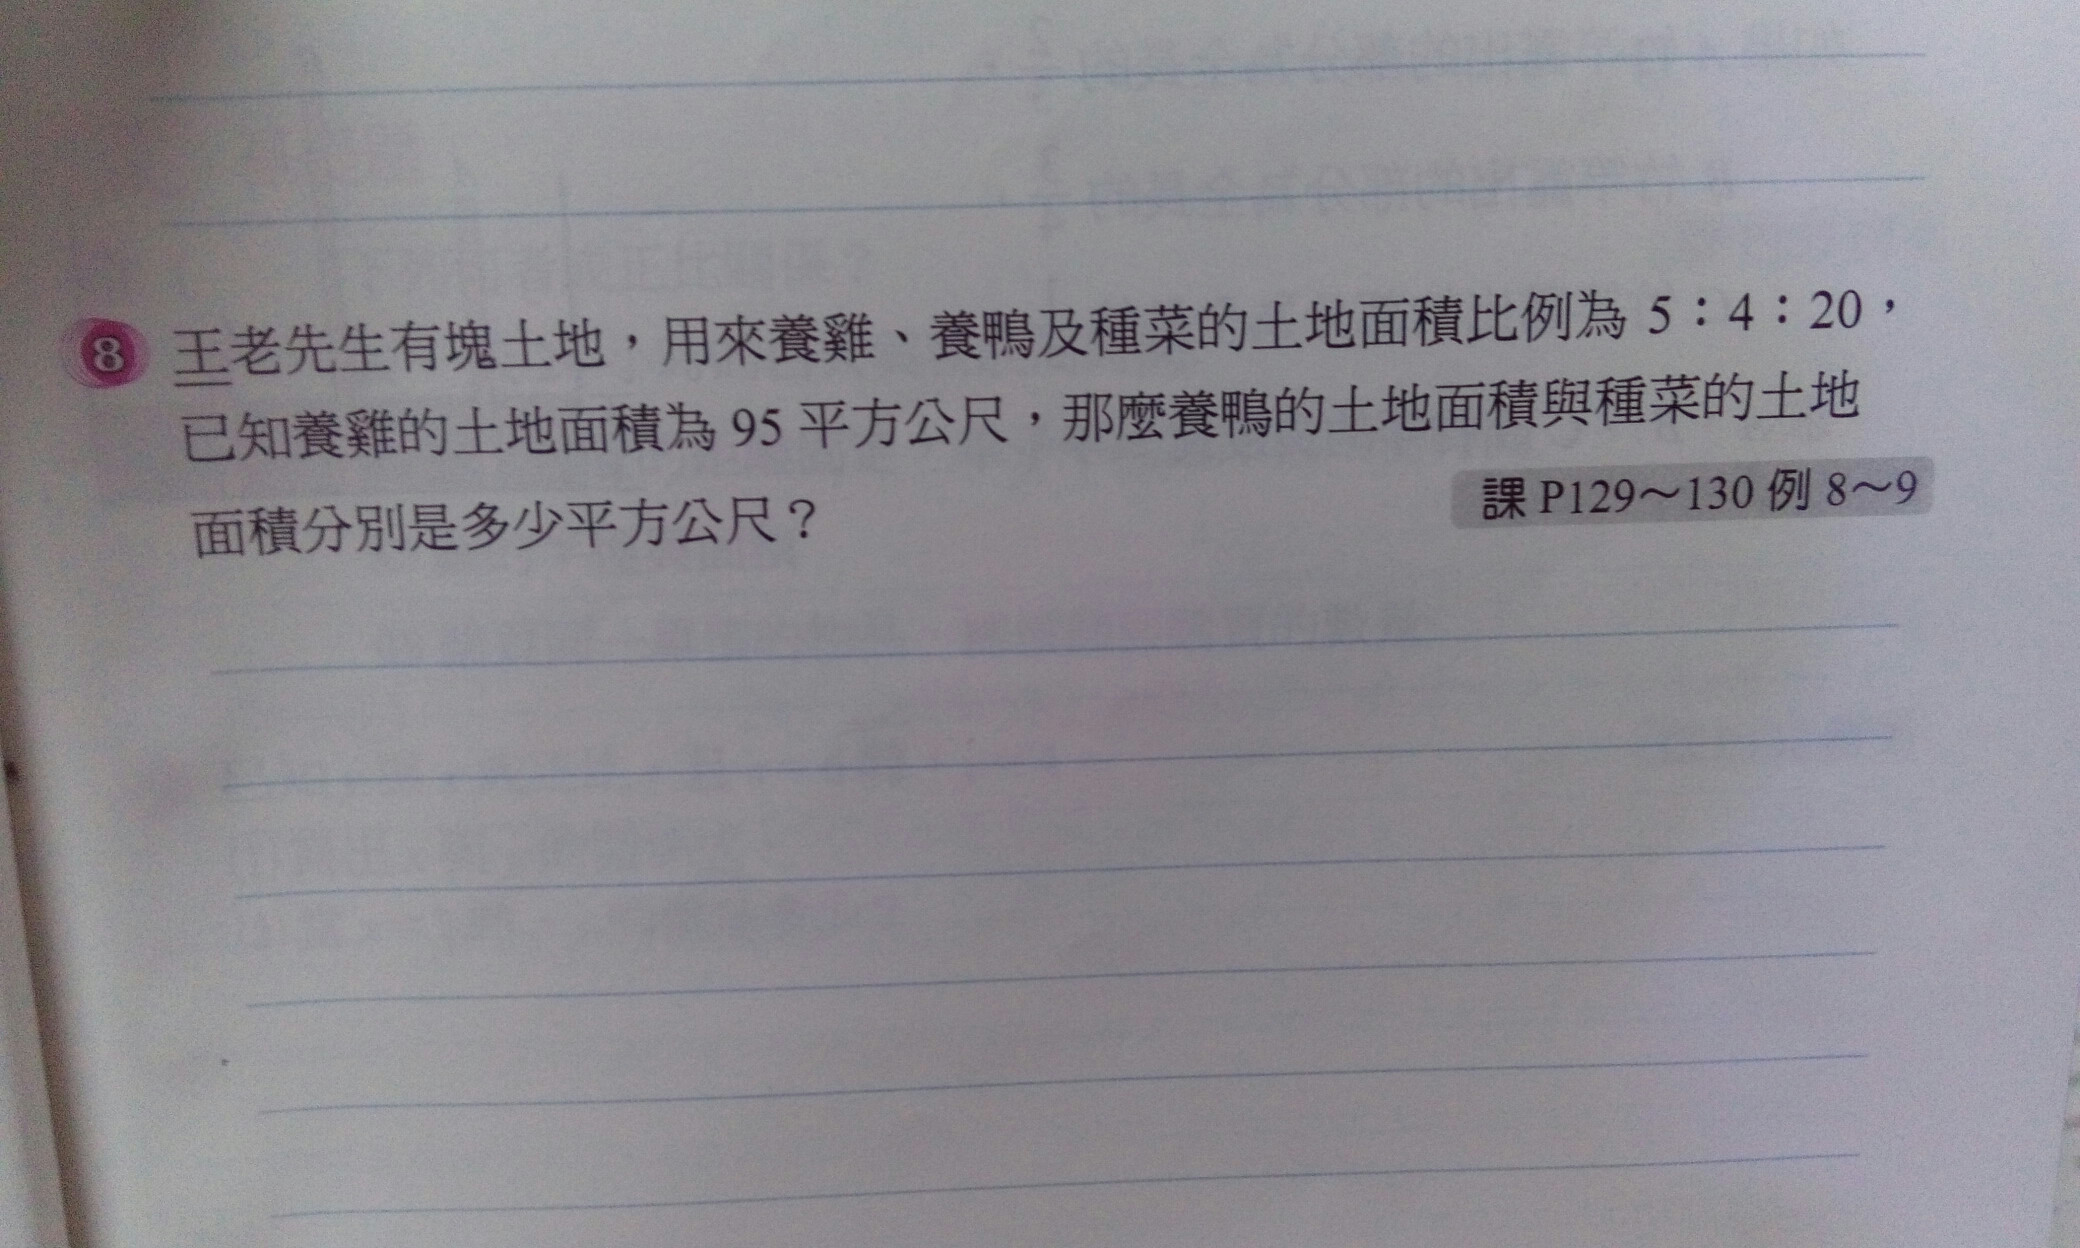 8 王老先生有塊土地，用來養雞、養鴨及種菜的土地面積比例為 5：4：20，
已知養雞的土地面積為 95 平方公尺，那麼養鴨的土地面積與種菜的土地
面積分別是多少平方公尺？
課 P129～130 例 8～9